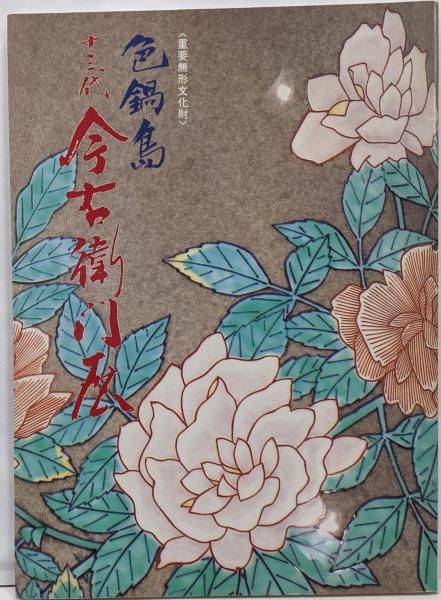 〈重要無形文化財〉
色鍋島
十三代
今右衛門展